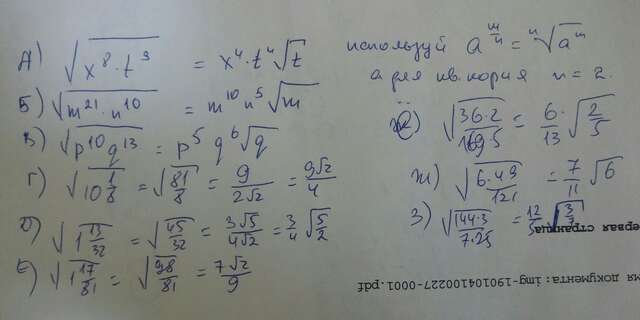 А) √(x⁸·t⁹) = x⁴·t⁴√t
Б) √(m²¹·n¹⁰) = m¹⁰n⁵√m
В) √(p¹⁰q¹³) = p⁵q⁶√q
Г) √(10 1/8) = √(81/8) = 9/(2√2) = 9√2/4
Д) √(1 13/32) = √(45/32) = 3√5/(4√2) = 3/4 √(5/2)
Е) √(1 17/81) = √(98/81) = 7√2/9
используй a^(m/n) = ⁿ√(aᵐ)
а для кв. корня n = 2.
ё) √(36·2/(169·5)) = 6·/13 √(2/5)
ж) √(6·49/121) = 7/11 √6
з) √(144·3/(7·25)) = 12/5 √(3/7)
ервая страница
мя документа: img-190104100227-0001.pdf